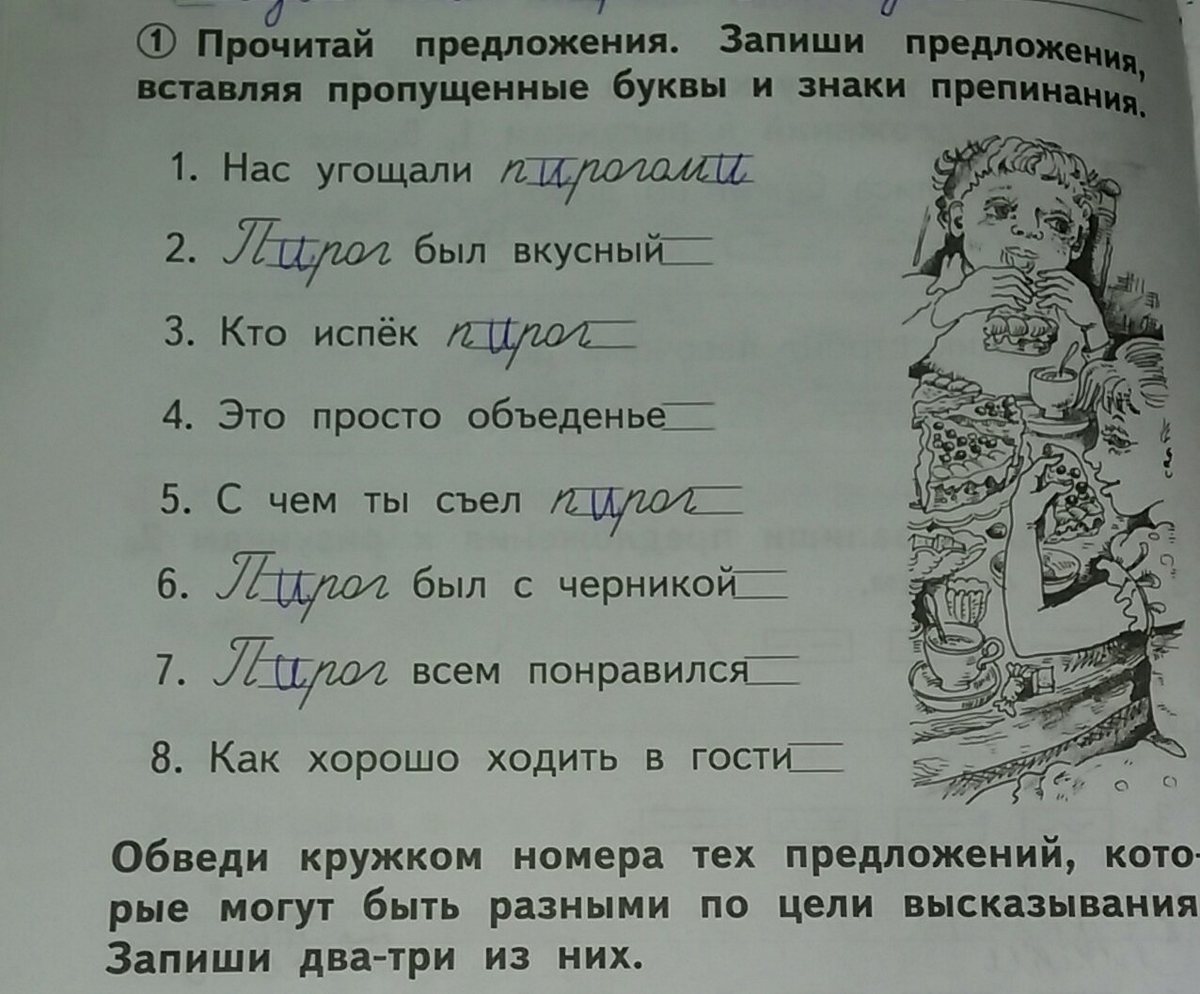 ① Прочитай предложения. Запиши предложения,
вставляя пропущенные буквы и знаки препинания.
1. Нас угощали пирогами
2. Пирог был вкусный
3. Кто испёк пирог
4. Это просто объеденье
5. С чем ты съел пирог
6. Пирог был с черникой
7. Пирог всем понравился
8. Как хорошо ходить в гости
Обведи кружком номера тех предложений, кото-
рые могут быть разными по цели высказывания
Запиши два-три из них.